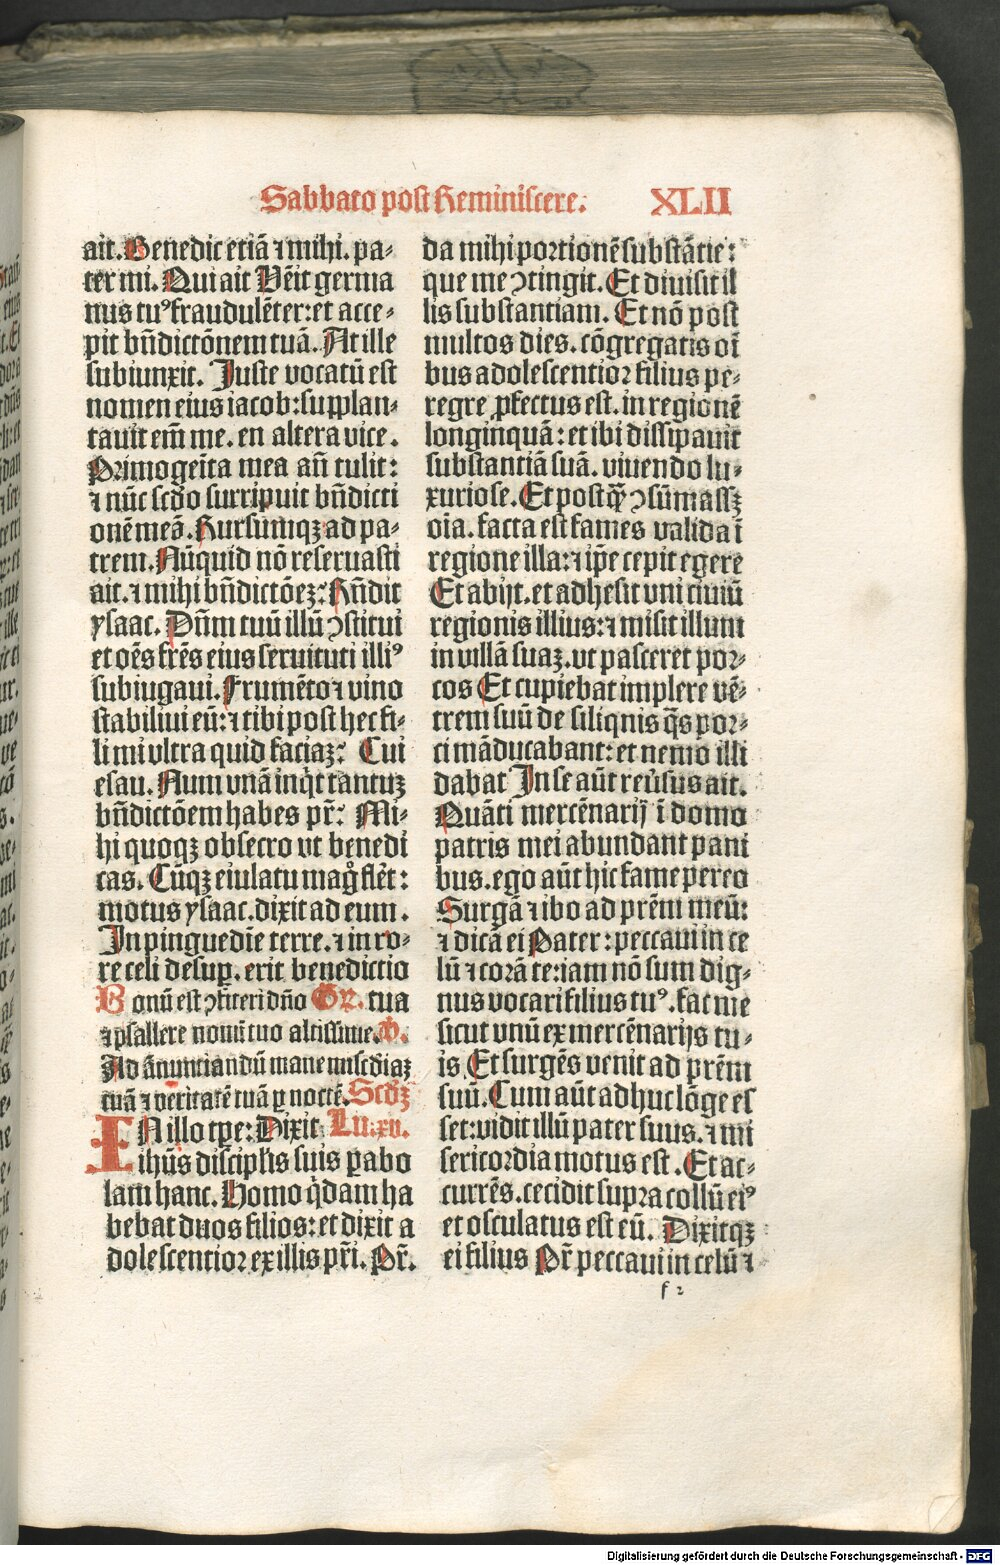 Sabbato post Reminiscere. XLII
ait. Benedic etiā ⁊ mihi. pa-
ter mi. Qui ait Vēit germa
nus tuꝰ fraudulēter: et acce-
pit bn̄dictōnem tuā. At ille
subiunxit. Iuste vocatū est
nomen eius iacob: supplan-
tauit em̄ me. en altera vice.
Primogeīta mea an̄ tulit:
⁊ nūc scd̄o surripuit bn̄dicti
onē meā. Rursumqꝫ ad pa-
trem. Nūquid nō reseruasti
ait. ⁊ mihi bn̄dictōeꝫ: Rn̄dit
ysaac. Dn̄m tuū illū ꝯstitui
et oēs frēs eius seruituti illiꝰ
subiugaui. Frumēto ⁊ vino
stabiliui eū: ⁊ tibi post hec fi-
li mi vltra quid faciaꝫ: Cui
esau. Num vnā inq̇t tantuꝫ
bn̄dictōem habes pr̄: Mi-
hi quoqꝫ obsecro vt benedi
cas. Cūqꝫ eiulatu mag̊ flēt:
motus ysaac. dixit ad eum.
In pinguedīe terre. ⁊ in ro-
re celi desuꝑ. erit benedictio
Bonū est ꝯfiteri dn̄o Gr̄. tua
⁊ psallere nomī tuo altissime. V.
Ad ānunciandū mane miscdiaꝫ
tuā ⁊ veritatē tuā ꝑ noctē. Scdꝫ
IN illo tꝑe: Dixit Lu. xv.
ihūs disciplis suis ꝑabo
lam hanc. Homo q̇dam ha
bebat duos filios: et dixit a
dolescentior ex illis pr̄i. Pr̄.
da mihi portionē substātie:
que me ꝯtingit. Et diuisit il
lis substantiam. Et nō post
multos dies. cōgregatis oī
bus adolescentior filius pe-
regre ꝓfectus est. in regionē
longinquā: et ibi dissipauit
substantiā suā. viuendo lu-
xuriose. Et postq̄ꝫ ꝯsūmassꝫ
oīa. facta est fames valida ī
regione illa: ⁊ ip̄e cepit egere
Et abijt. et adhesit vni ciuiū
regionis illius: ⁊ misit illum
in villā suaꝫ. vt pasceret por-
cos Et cupiebat implere vē-
trem suū de siliqnis q̄s por-
ci māducabant: et nemo illi
dabat In se aūt reu̇sus ait.
Quāti mercēnarij ī domo
patris mei abundant pani
bus. ego aūt hic fame pereo
Surgā ⁊ ibo ad prēm meū:
⁊ dicā ei Pater: peccaui in ce
lū ⁊ corā te: iam nō sum dig-
nus vocari filius tuꝰ. fac me
sicut vnū ex mercēnarijs tu-
is. Et surgēs venit ad prēm
suū. Cum aūt adhuc lōge es
set: vidit illū pater suus. ⁊ mi
sericordia motus est. Et ac-
currēs. cecidit supra collū eiꝰ
et osculatus est eū. Dixitqꝫ
ei filius Pr̄ peccaui in celū ⁊
f 2
Digitalisierung gefördert durch die Deutsche Forschungsgemeinschaft - DFG